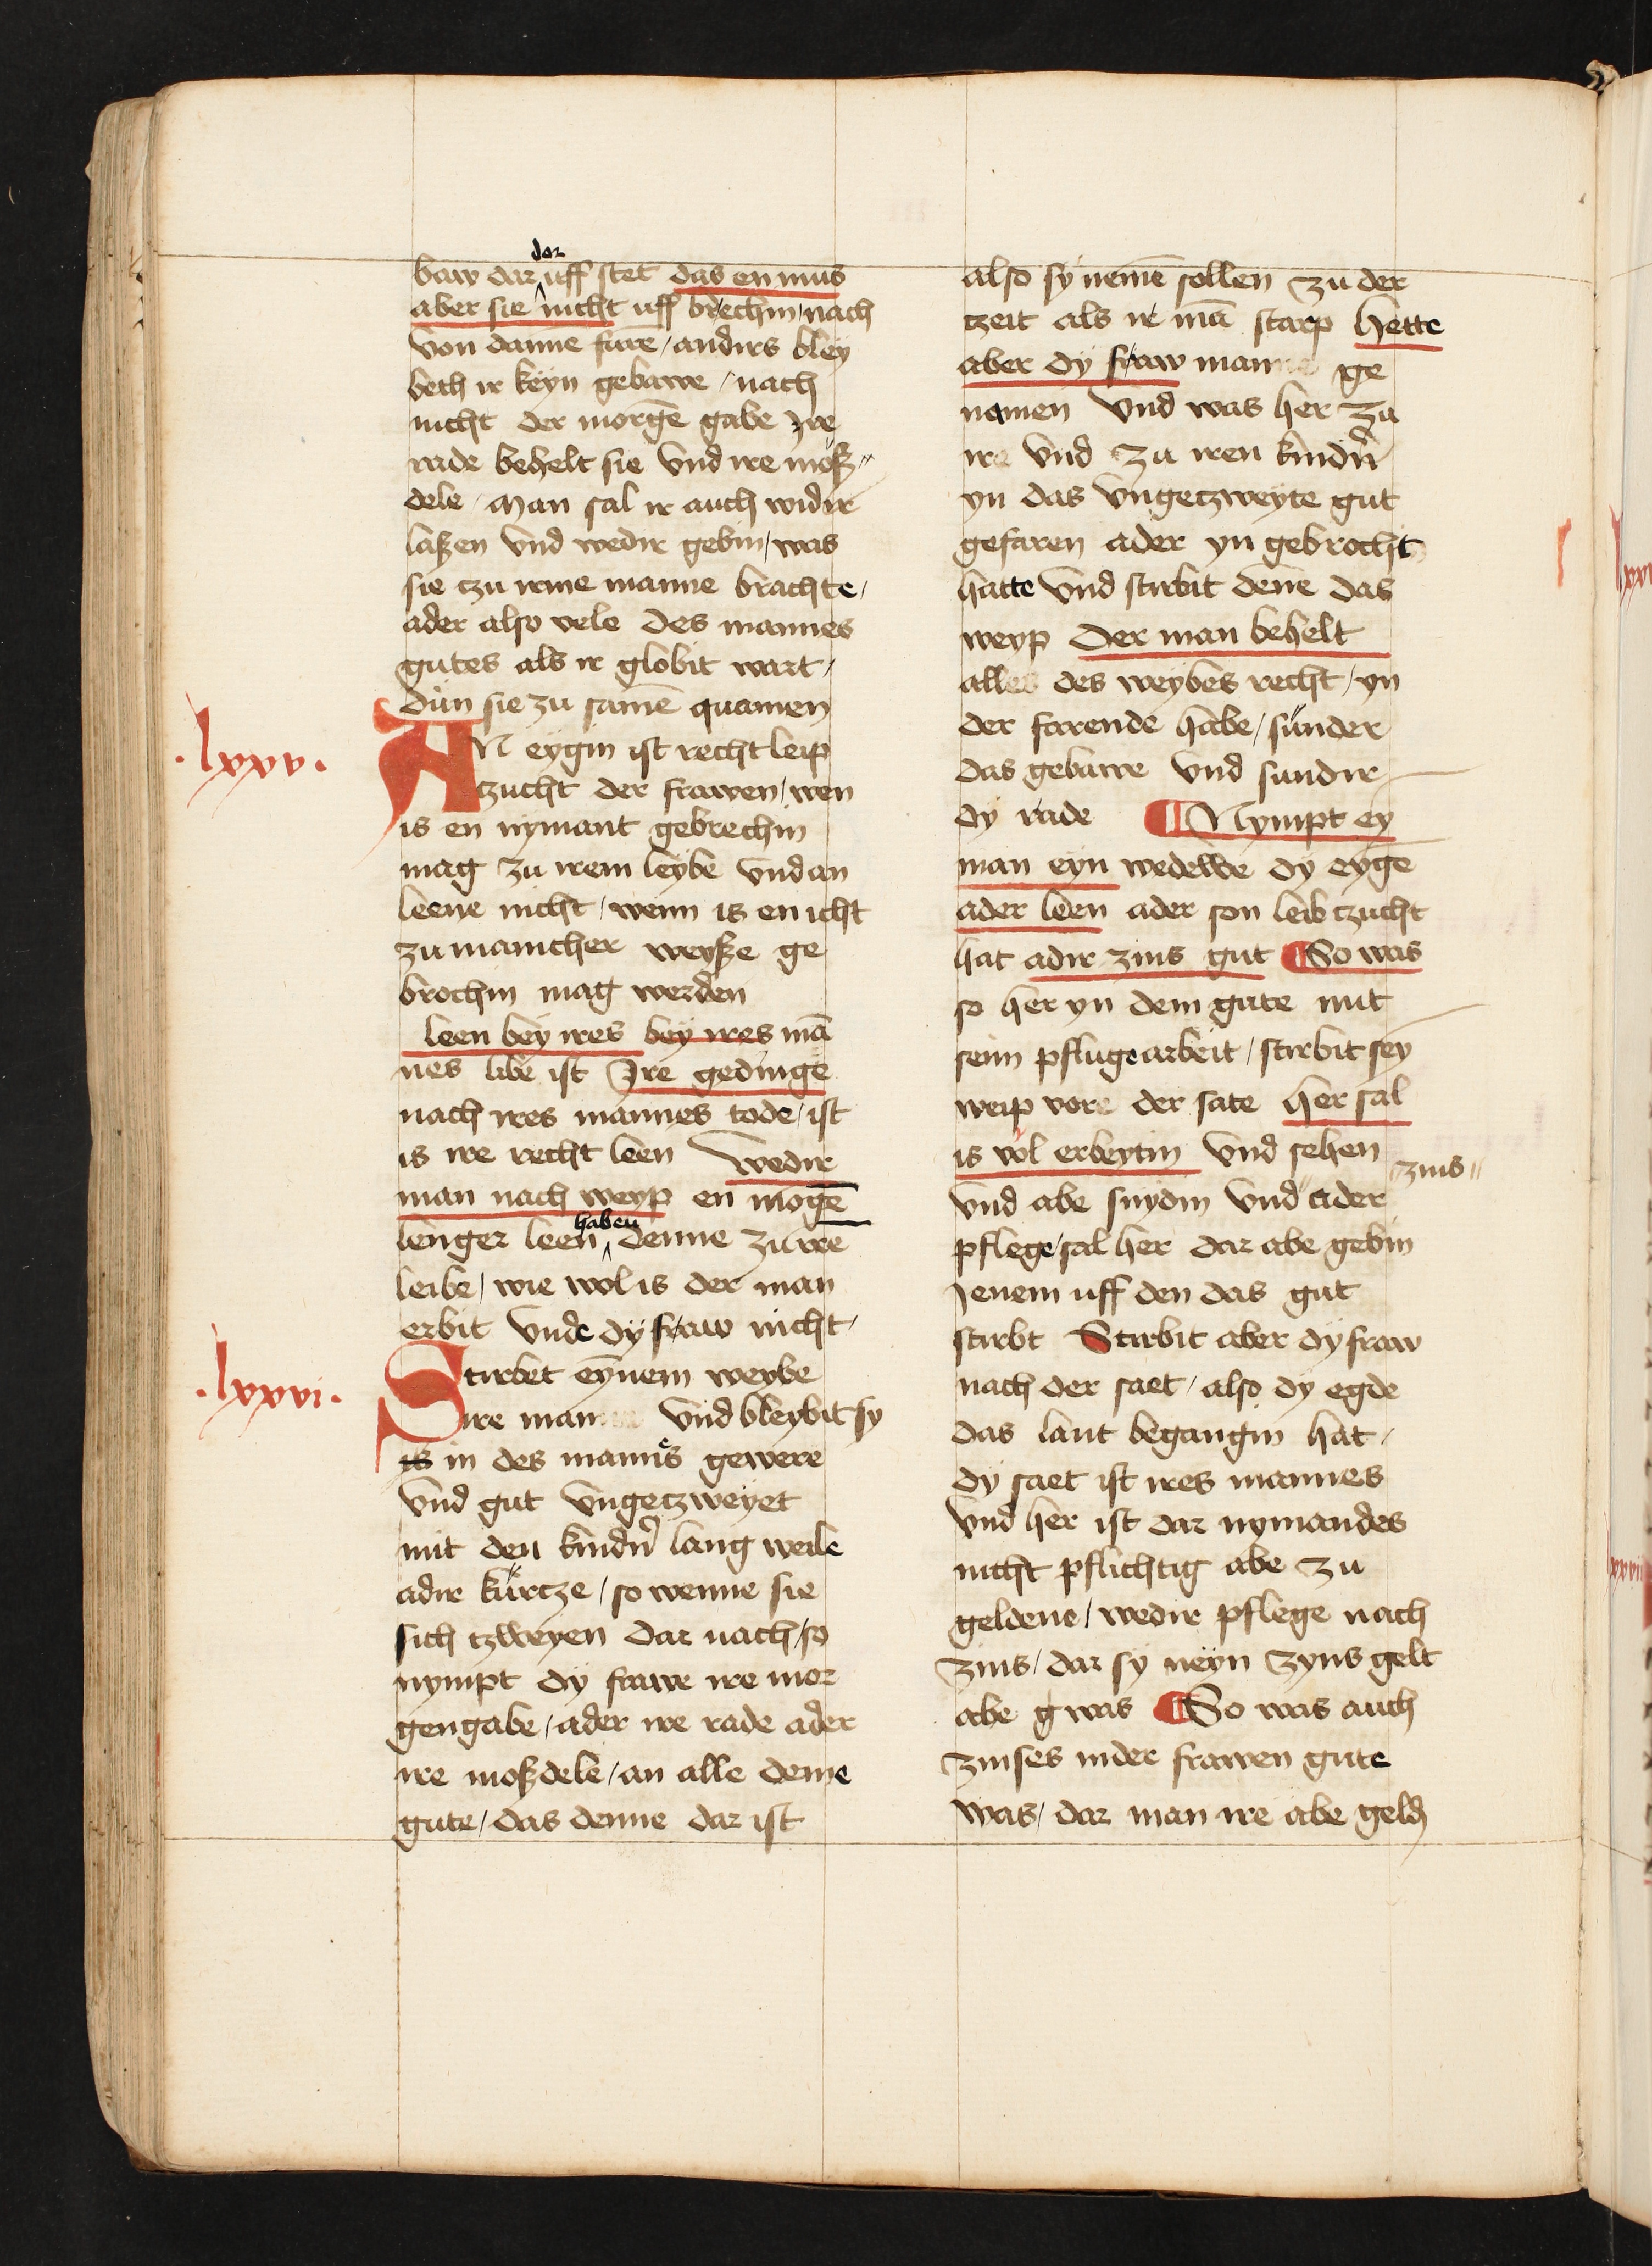 baw dar dor uff stet das en mus
aber sie nicht uff brechin / nach
von danne fare / andirs bley
beth ir keyn gebawe / nach
nicht der morgē gabe Jre
rade behelt sie vnd ire mosz
dele / Man sal ir auch widir
laszen vnd wedir gebin / was
sie czu irme manne brachte /
ader also vele des mannes
gutes als ir globit wart /
dün sie zu samē quamen
.lxxv.
AN eygin ist recht leip
zucht der frawen / wen
is en nymant gebrechin
mag zu irem leybe vnd an
leene nicht / wenn is en icht
zu mancher weysze ge
brochin mag werden
leen bey ires bey ires mā
nes libe ist Jre gedinge
nach ires mannes tode / ist
is ire recht leen wedir
man nach weyp en mogē
lenger leen haben denne zu ire
leibe / wie wol is der man
erbit vnde dy fraw nicht /
.lxxvi.
Stirbet eynem weybe
ire man vnd bleybit sy
is in des mannes gewere
vnd gut vngeczweyet
mit den kindn̄ lang weile
adir kürcze / so wenne sie
sich tzweyen dar nach / so
nympt dy frawe ire mor
gengabe / ader ire rade ader
ire moszdele / an alle deme
gute / das denne dar ist
also sy nemē sollen zu der
tzeit als ir mā starp hette
aber dy fraw manne ge
nomen vnd was her zu
ire vnd zu iren kindn̄
yn das vngetzweyte gut
gefaren ader yn gebrocht
hatte vnd stirbit dēne das
weyp Der man behelt
alles des weybes recht / yn
der farende habe / sunder
das gebawe vnd sundir
dy rade ¶ Nympt ey
man eyn wedewe dy eygē
ader leen ader son leibczucht
hat adir zins gut ¶ So was
so her yn dem gute mit
seim pfluge arbeit / stirbit sey
weip vore der sate her sal
is vol erbeytin vnd sehen
vnd abe snydin vnd zins ader
pflege / sal her dar abe gebin
Jenem uff den das gut
stirbt Stirbit aber dy fraw
nach der saet / also dy egde
das lant begangin hat /
dy saet ist ires mannes
vnd her ist dar nymandes
nicht pflichtig abe zu
geldene / wedir pflege nach
zins / dar sy neyn zyns gelt
abe g was ¶ So was auch
zinses inder frawen gute
was / dar man ire abe geld